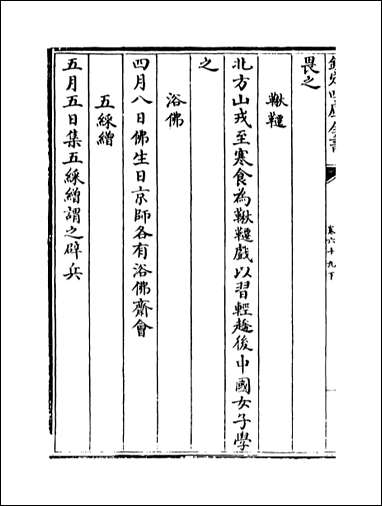 欽定四庫全書
卷六十九下
畏之
鞦韆
北方山戎至寒食為鞦韆戲以習輕趫後中國女子學
之
浴佛
四月八日佛生日京師各有浴佛齋會
五綵繒
五月五日集五綵繒謂之辟兵